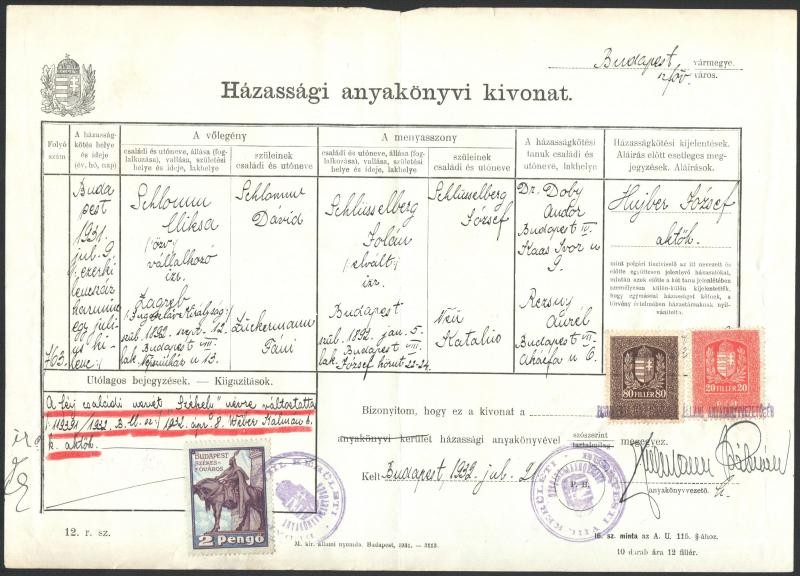 Budapest vármegye.
város.
Házassági anyakönyvi kivonat.
Folyó szám
A házasság-kötés helye és ideje (év, hó, nap)
A vőlegény
családi és utóneve, állása (foglalkozása), vallása, születési helye és ideje, lakhelye
szüleinek családi és utóneve
A menyasszony
családi és utóneve, állása (foglalkozása), vallása, születési helye és ideje, lakhelye
szüleinek családi és utóneve
A házasságkötési tanuk családi és utóneve, lakhelye
Házasságkötési kijelentések. Aláírás előtt esetleges megjegyzések. Aláírások.
463.
Buda
pest
1931
jul. 9
Miksa
vállalkozó
izr.
Zagreb
Jugoszláv Királyság
szül. 1892. szept. 12.
Budapest VII.
lak. Népszinház u 13.
Dávid
Zuckermann
Fáni
Schlüsselberg
Jolán
elvált
izr.
Budapest
szül. 1892. jan. 5.
Budapest VIII.
lak. József körut 22-24.
Schlüsselberg
József
Katalin
Dr. Doby
Andor
Budapest IV.
Kaas Ivor u
9.
Rezsny
Aurél
Budapest VII.
Akácfa u 6.
Hujber József
aktőh.
mint polgári tisztviselő az itt nevezett és
előtte együttesen jelenlévő házasulókat,
miután ezek előtte és a két tanu jelenlétében
személyesen külön-külön kijelentették,
hogy egymással házasságot kötnek, a
törvény értelmében házastársaknak nyilvánította.
Utólagos bejegyzések. — Kiigazitások.
A férj családi nevét "Székely" névre változtatta
119391/1932. B. M. sz. 1932. apr. 8. Wéber Kálmán h.
k. aktőh.
80 FILLÉR 80
20 FILLÉR 20
Bizonyitom, hogy ez a kivonat a
anyakönyvi kerület házassági anyakönyvével
szószerint
tartalmilag
megegyez.
Kelt Budapest 1932 jul. 2
P. H.
anyakönyvvezető
BUDAPEST
SZÉKES-
FŐVÁROS
2 Pengő
12. r. sz.
M. kir. állami nyomda. Budapest, 1931. — 3823.
16. sz. minta az A. U. 115. §-ához.
10 darab ára 12 fillér.